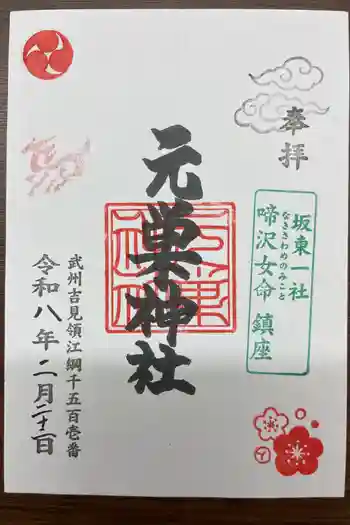 奉拝
坂東一社
なきさわめのみこと
啼沢女命 鎮座
元巣神社
武州吉見領江綱千五百壱番
令和八年二月二十一日